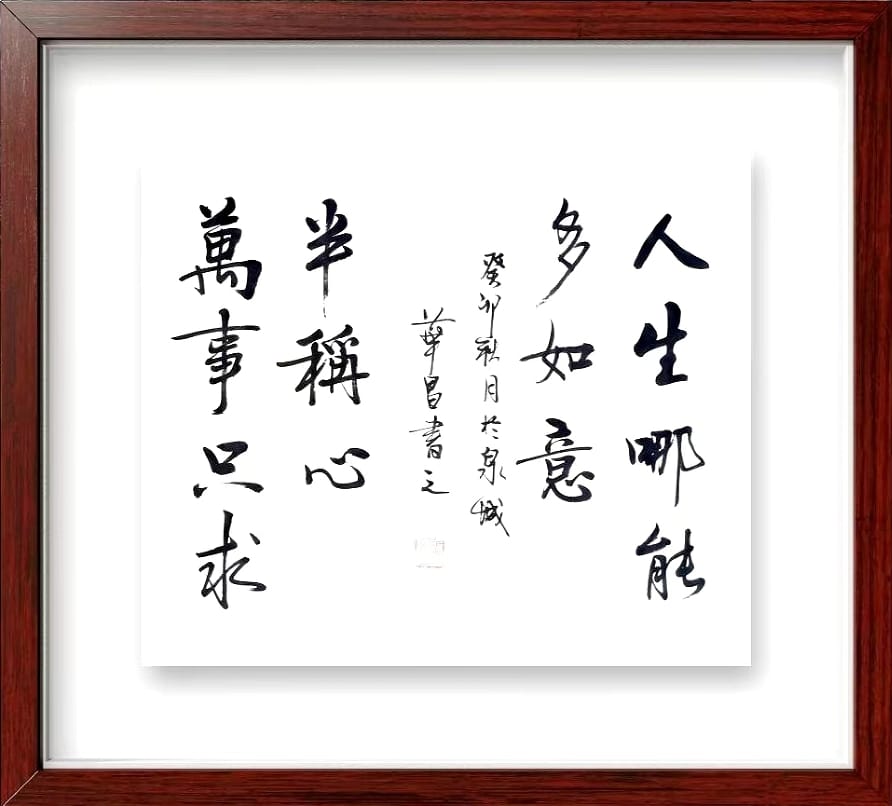 人生哪能
多如意
萬事只求
半稱心
癸卯秋月於泉城
華昌書之